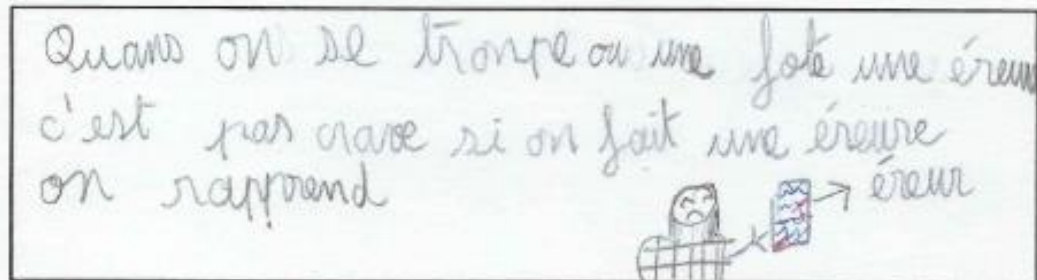 Quans on se tronpe ou une fote une éreur
c'est pas crave si on fait une éreure
on rapprend
éreur